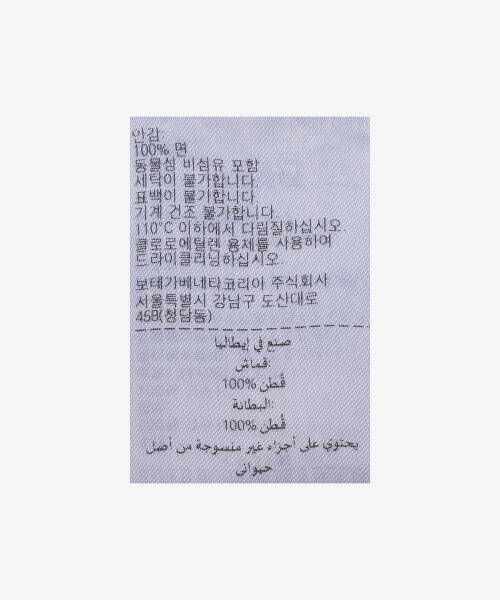 안감:
100% 면
동물성 비섬유 포함
세탁이 불가합니다.
표백이 불가합니다.
기계 건조 불가합니다.
110°C 이하에서 다림질하십시오.
클로로에틸렌 용제를 사용하여
드라이클리닝하십시오.
보테가베네타코리아 주식회사
서울특별시 강남구 도산대로
458(청담동)
صنع في إيطاليا
قماش:
قُطن %100
البطانة:
قُطن %100
يحتوي على أجزاء غير منسوجة من أصل
حيواني